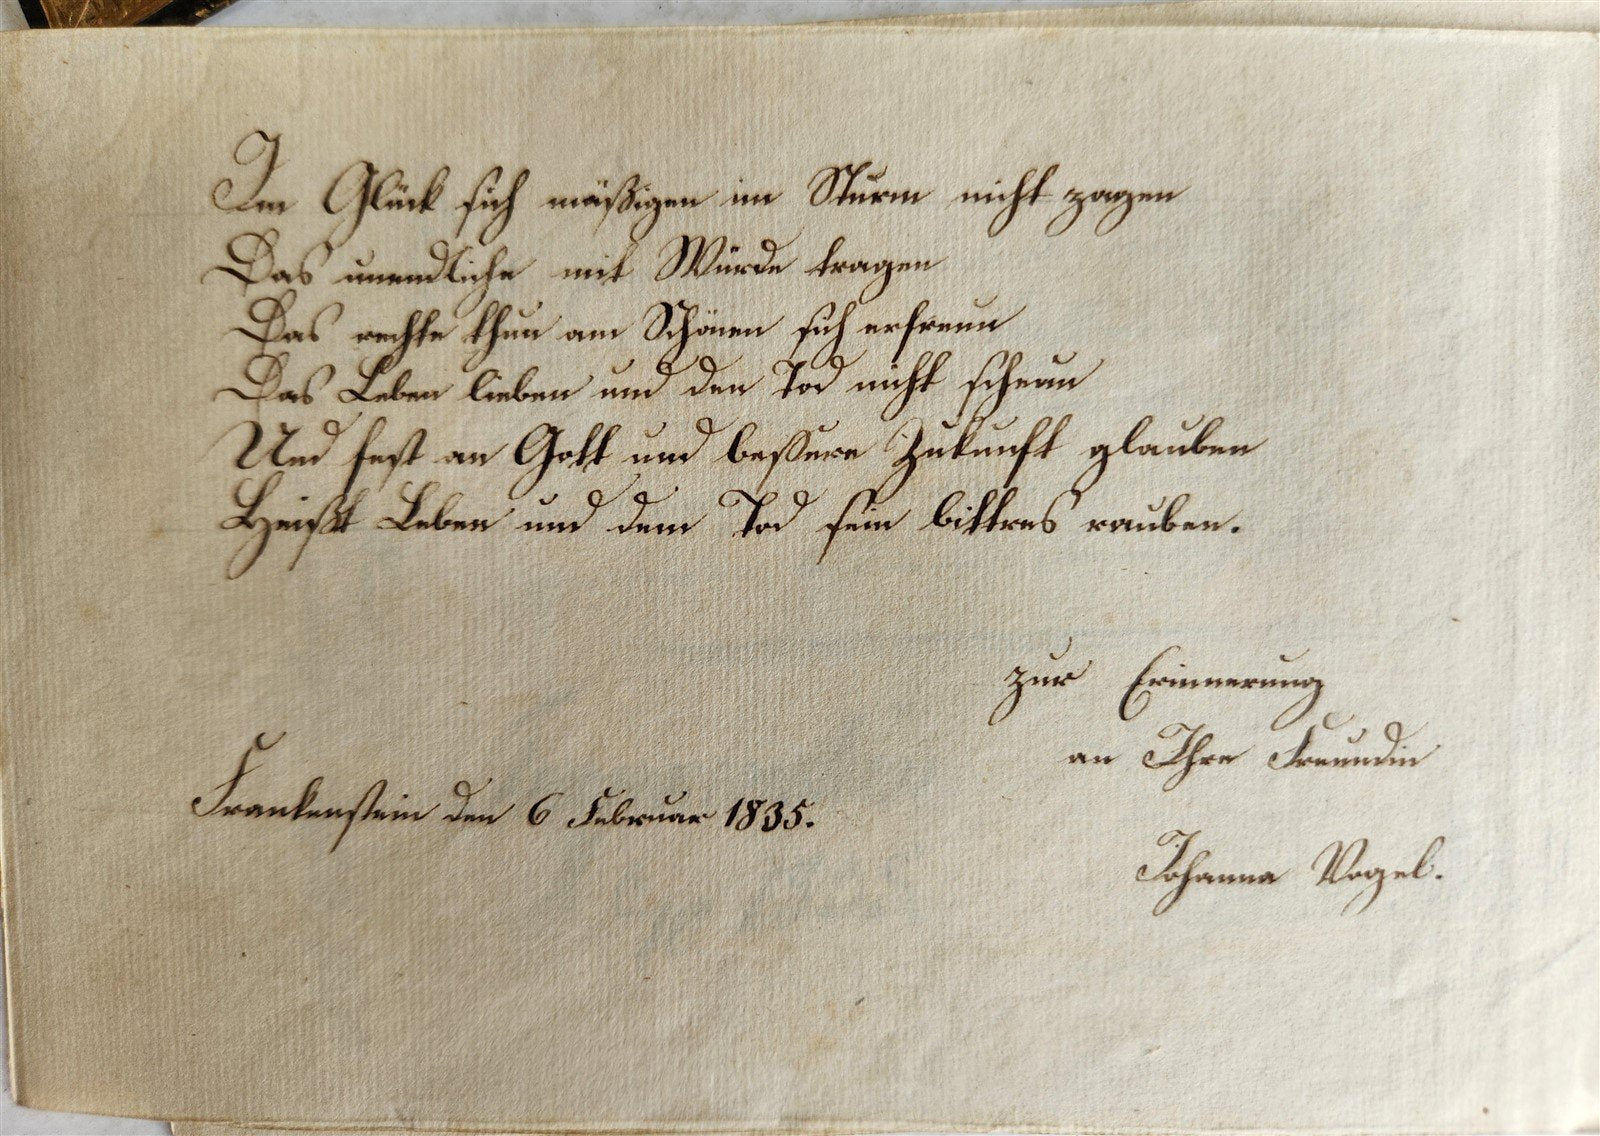 Im Glück sich mäßigen im Sturm nicht zagen
Das unendliche mit Würde tragen
Das rechte thun am Schönen sich erfreun
Das Leben lieben und den Tod nicht scheun
Und fest an Gott und bessere Zukunft glauben
Heißt Leben und dem Tod sein bittres rauben.
zur Erinnerung
an Ihre Freundin
Frankenstein den 6 Februar 1835.
Johanna Vogel.